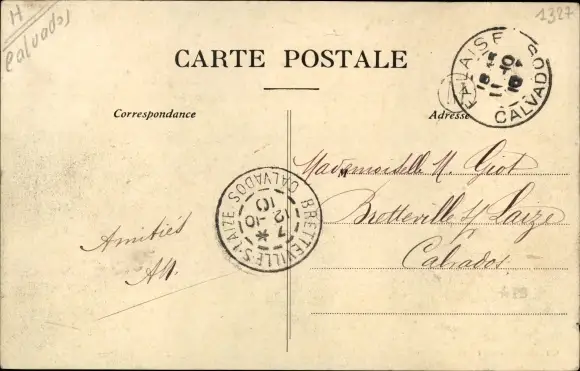 H
Calvados
1327
CARTE POSTALE
Correspondance
Adresse
CALVADOS
Mademoiselle M. Giot
Bretteville s/ Laize
Calvados
BRETTEVILLE-S-LAIZE
CALVADOS
7
12 -10
10
Amitiés